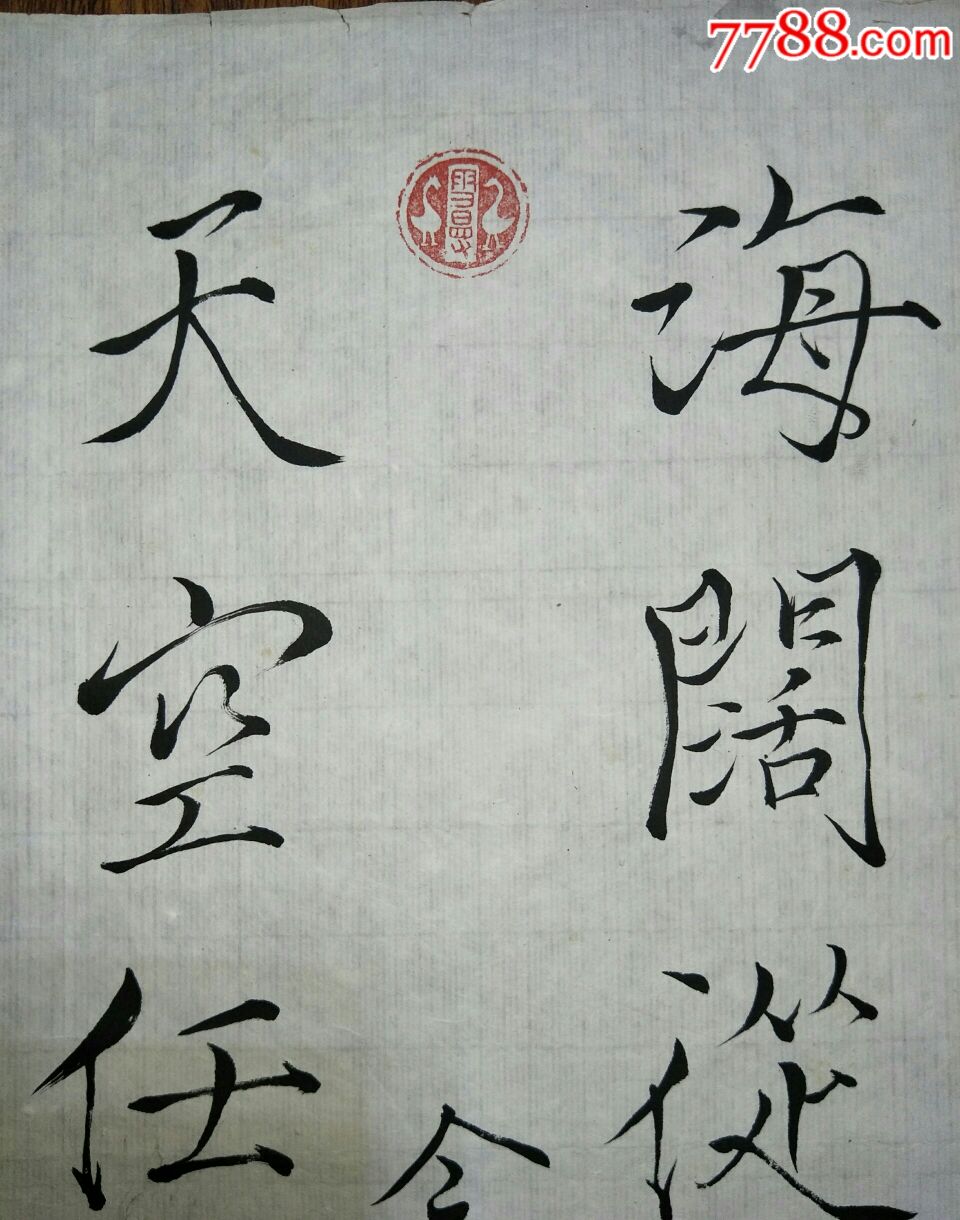 7788.com
海闊從
天空任